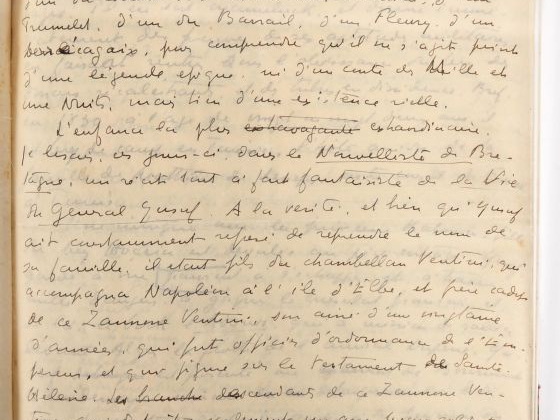 Trumelet, d'un du Barrail, d'un Fleury, d'un
pour comprendre qu'il ne s'agit point
d'une légende épique, ni d'un conte des Mille et
une Nuits, mais bien d'une existence réelle.
L'enfance la plus extravagante extraordinaire.
Je lisais, ces jours-ci, dans le Nouvelliste de Bre-
tagne, un récit tout à fait fantaisiste de la Vie
du Général Yusuf. A la vérité, et bien qu'Yusuf
ait constamment refusé de reprendre le nom de
sa famille, il était fils du chambellan Ventini, qui
accompagna Napoléon à l'île d'Elbe, et frère cadet
de ce Zannone Ventini, son aîné d'une vingtaine
d'années, qui fut officier d'ordonnance de l'Em-
pereur, et qui figure sur le testament de Sainte-
Hélène. Les branche descendants de ce Zannone Ven-